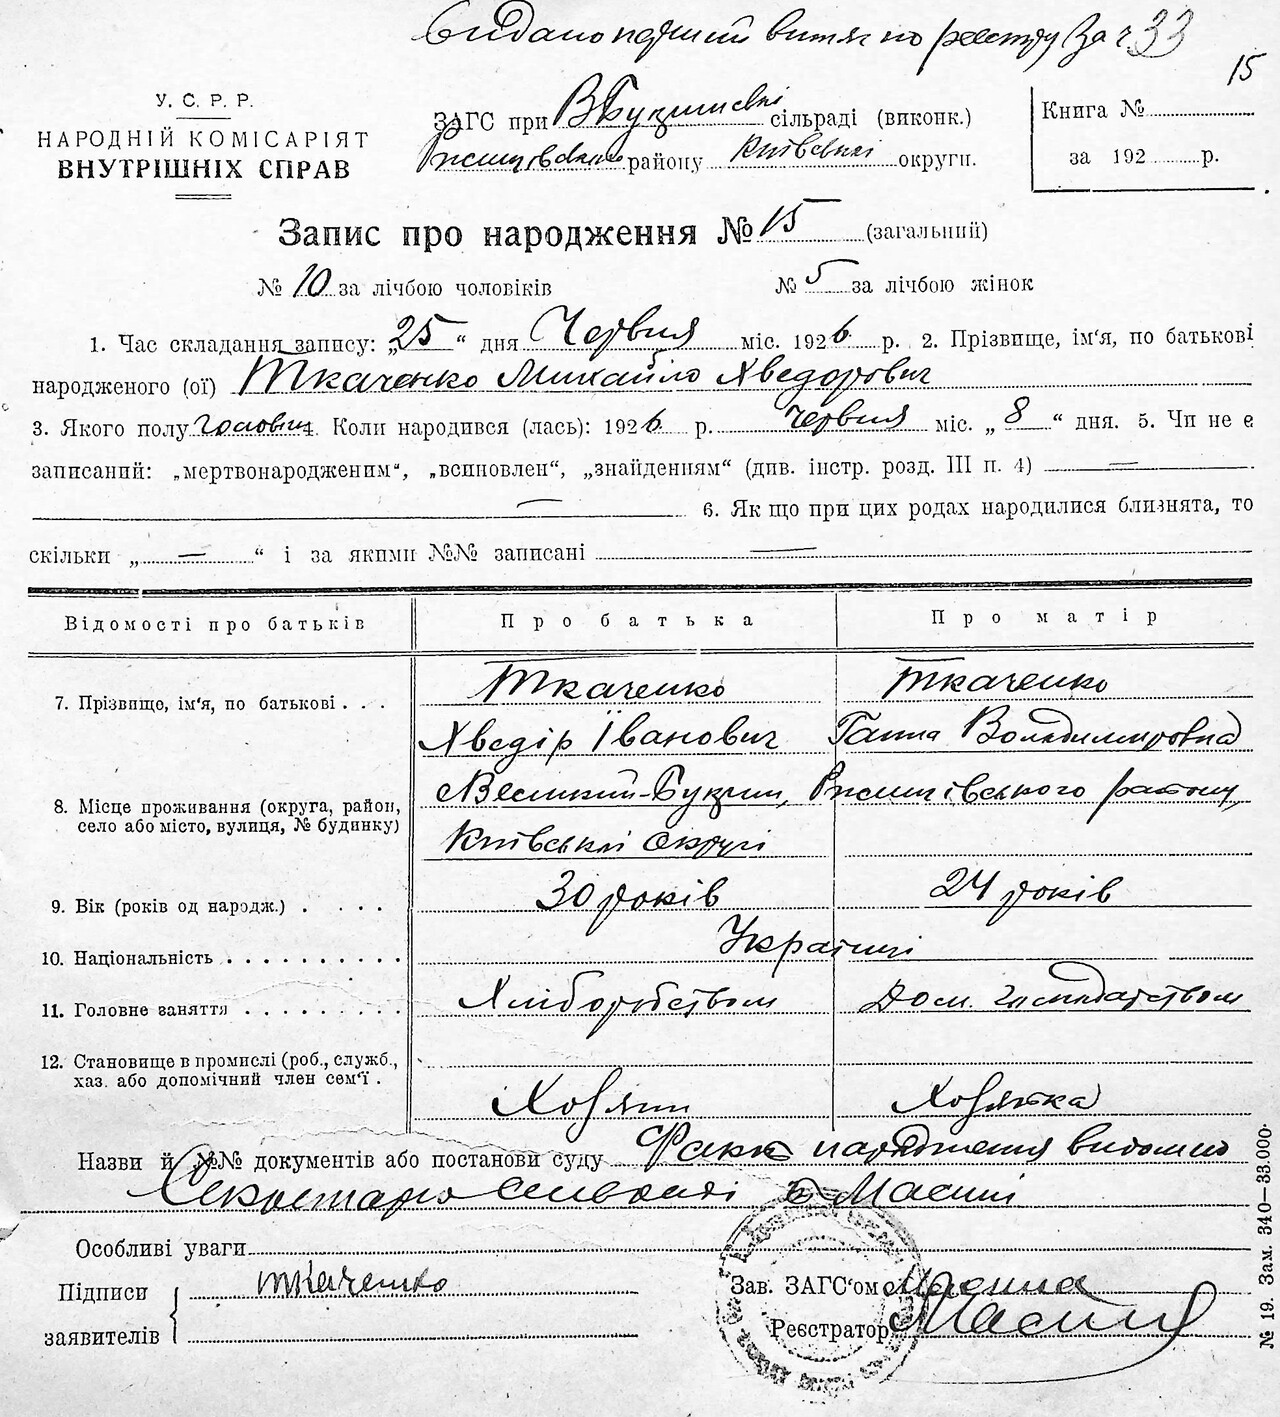 Видано перший витяг по реєстру За ч. 33
15
У. С. Р. Р.
НАРОДНІЙ КОМІСАРІЯТ
ВНУТРІШНІХ СПРАВ
ЗАГС при В Букринські сільраді (виконк.)
Ржищівського району Київської округи.
Книга №
за 192 р.
Запис про народження № 15 (загальний)
№ 10 за лічбою чоловіків № 5 за лічбою жінок
1. Час складання запису: „25“ дня Червня міс. 1926 р. 2. Прізвище, ім‘я, по батькові
народженого (ої) Ткаченко Михайло Хведорович
3. Якого полу чоловіч. Коли народився (лась): 1926 р. Червня міс. „8“ дня. 5. Чи не є
записаний: „мертвонародженим“, „всиновлен“, „знайденям“ (див. інстр. розд. III п. 4) —
— 6. Як що при цих родах народилися близнята, то
скільки „—“ і за якими №№ записані —
Відомості про батьків Про батька Про матір
7. Прізвище, ім‘я, по батькові . . . Ткаченко Ткаченко
Хведір Іванович Ганна Володимировна
8. Місце проживання (округа, район, село або місто, вулиця, № будинку) Великий-Букрин, Ржищівського району,
Київської округі
9. Вік (років од народж.) . . . . 30 років 24 років
10. Національність . . . . . . . . . . Українці
11. Головне заняття . . . . . . . . . Хліборобством Дом. господарством
12. Становище в промислі (роб., служб.,
хаз. або допомічний член сем‘ї . Хозяїн Хозяйка
Назви й №№ документів або постанови суду Факт народження видомий
Секретарю сильради Масині
Особливі уваги
Підписи Ткаченко Зав. ЗАГС‘ом
заявителів Реєстратор
№ 19. Зам. 340—33.000.